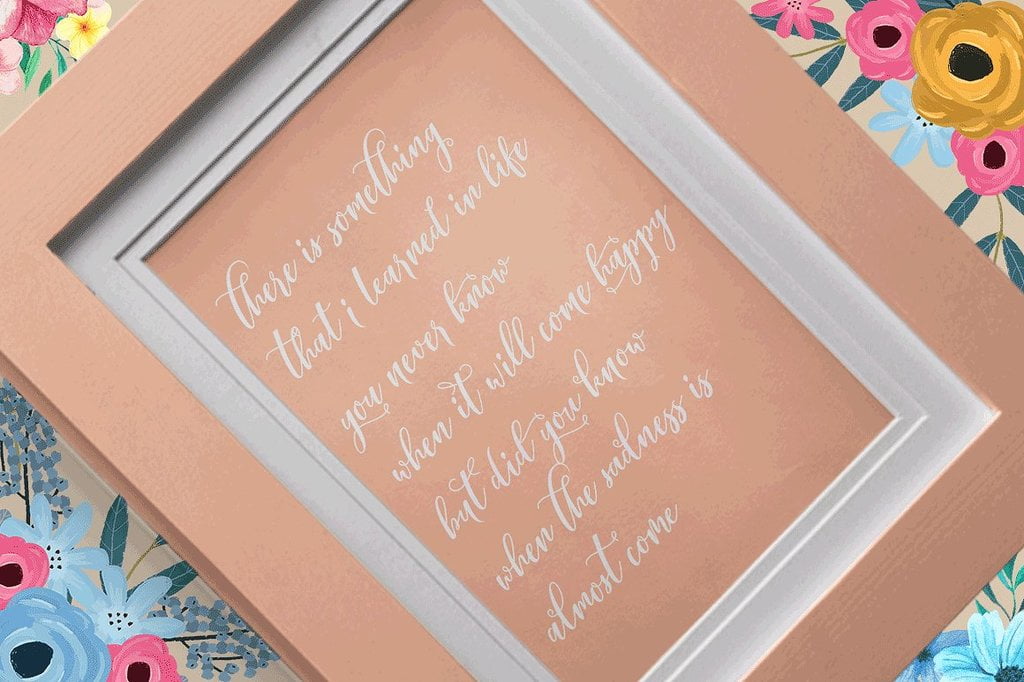 there is something
that i learned in life
you never know
when it will come happy
but did you know
when the sadness is
almost come